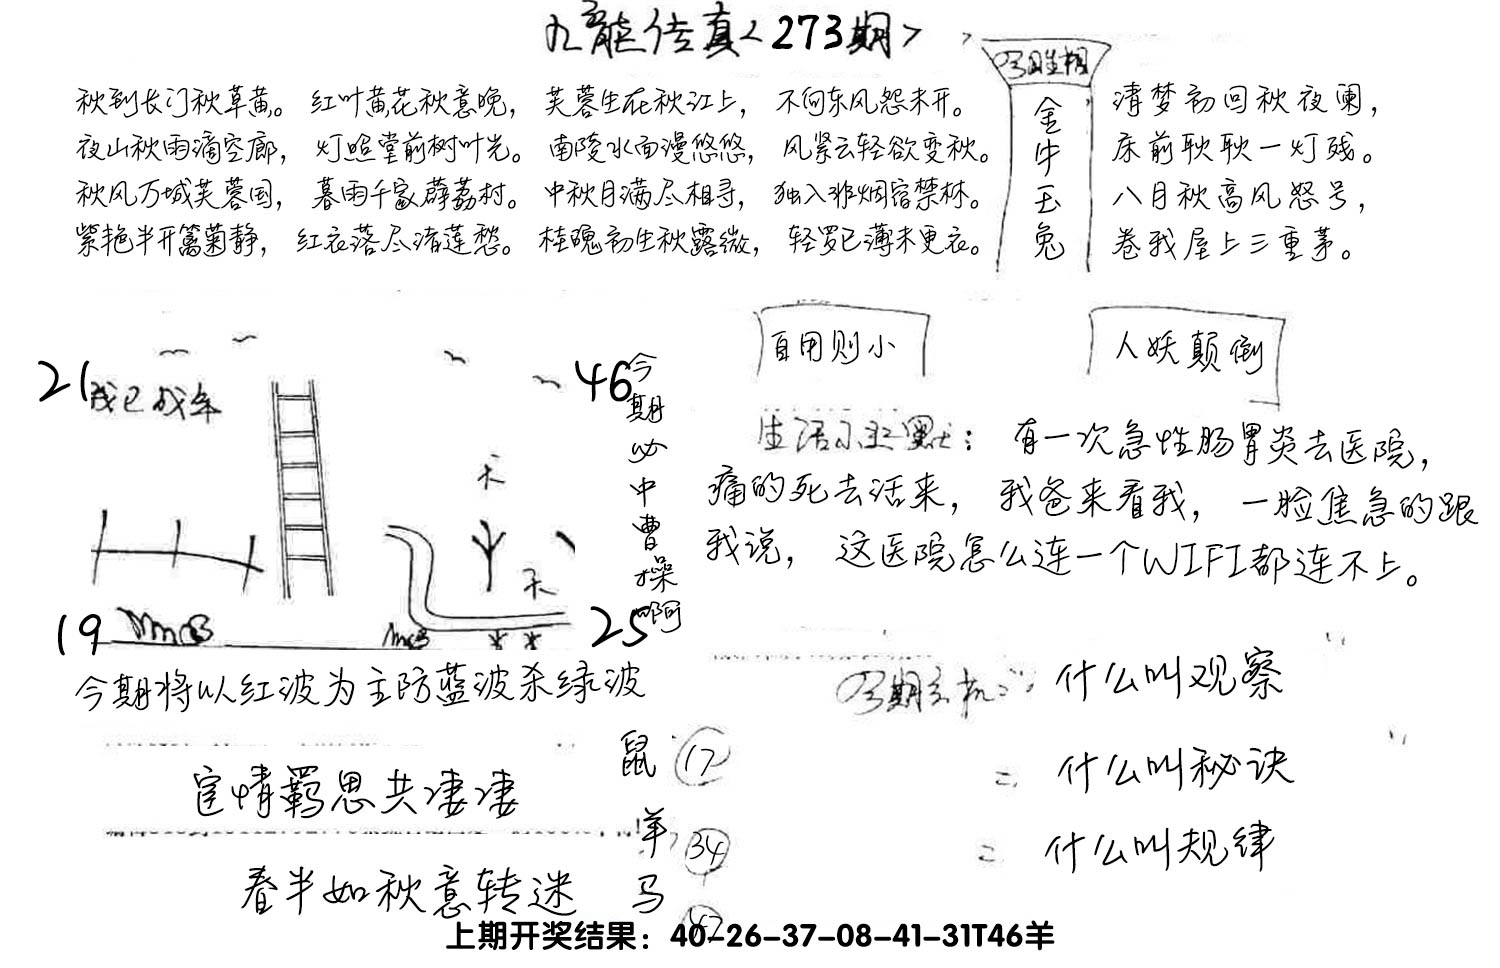 九龙传真<273期>
今日生相
秋到长门秋草黄。 红叶黄花秋意晚， 芙蓉生在秋江上， 不向东风怨未开。
夜山秋雨滴空廊， 灯照堂前树叶光。 南陵水面漫悠悠， 风紧云轻欲变秋。
秋风万城芙蓉国， 暮雨千家薜荔村。 中秋月满尽相寻， 独入非烟宿禁林。
紫艳半开篱菊静， 红衣落尽渚莲愁。 桂魄初生秋露微， 轻罗已薄未更衣。
金牛玉兔
清梦初回秋夜阑，
床前耿耿一灯残。
八月秋高风怒号，
卷我屋上三重茅。
21
我已成年
46
天
天
19
25
今期必中曹操啊
自用则小
人妖颠倒
生活小幽默： 有一次急性肠胃炎去医院，
痛的死去活来， 我爸来看我， 一脸焦急的跟
我说， 这医院怎么连一个WIFI都连不上。
今期将以红波为主防蓝波杀绿波
今期玄机: 什么叫观察
= 什么叫秘诀
= 什么叫规律
宦情羁思共凄凄
春半如秋意转迷
鼠 17
羊 34
马
上期开奖结果：40-26-37-08-41-31T46羊